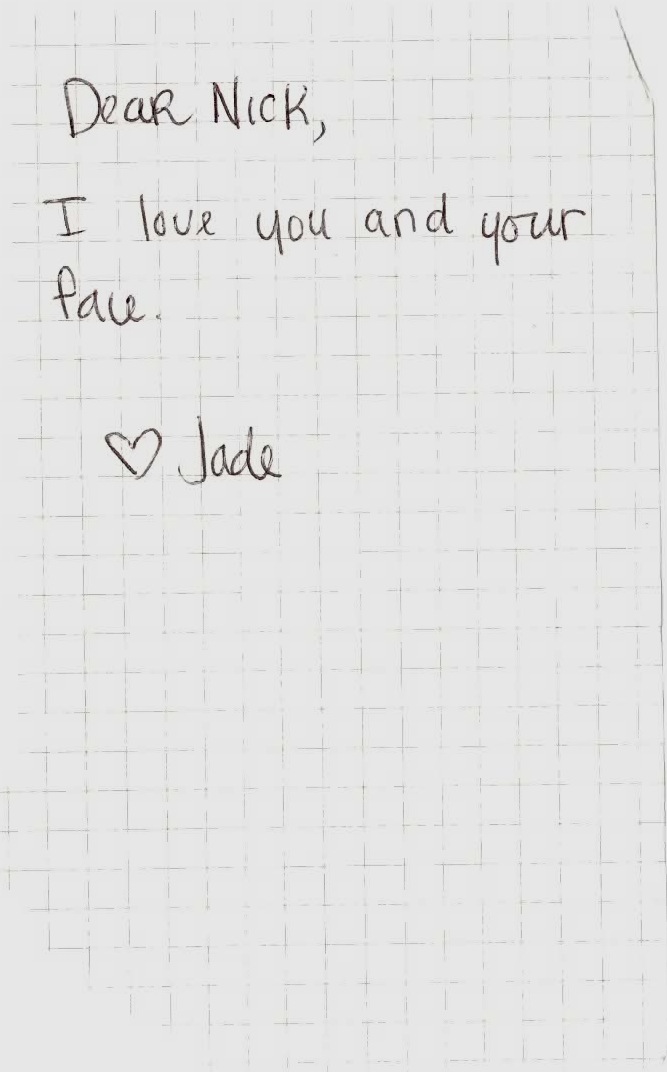 Dear Nick,
I love you and your
face.
♡ Jade